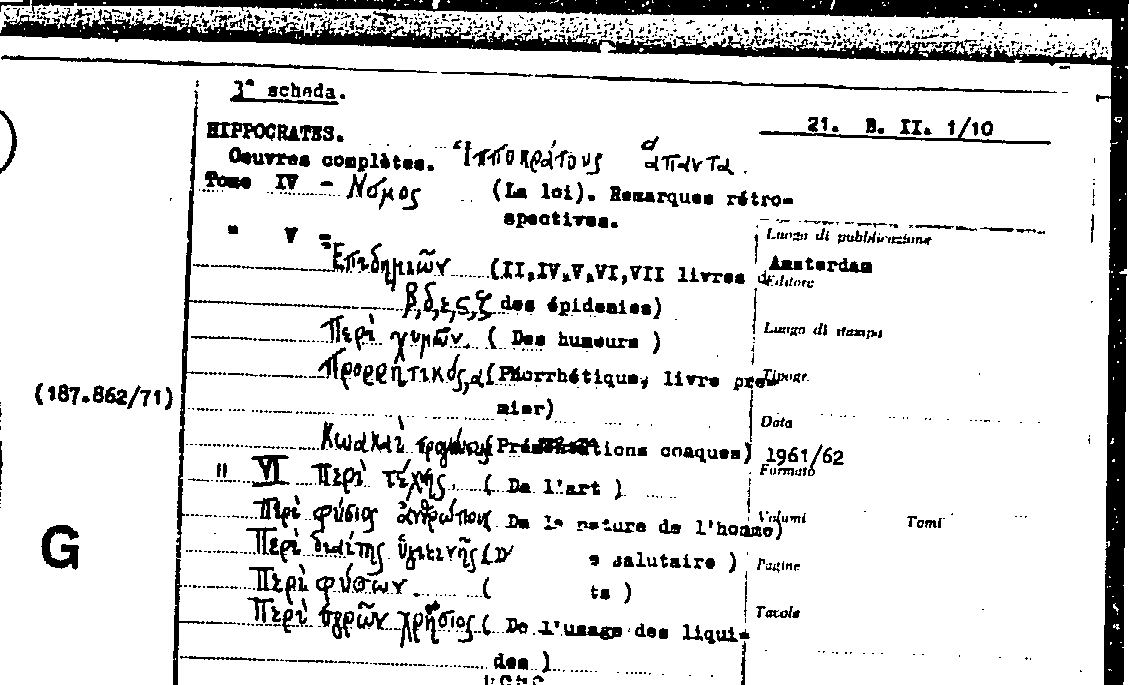 3ª scheda.
21. B. II. 1/10
HIPPOCRATES.
Oeuvres complètes. Ἱπποκράτους ἅπαντα.
Tome IV - Νόμος (La loi). Remarques rétro-
spectives.
" V - Ἐπιδημιῶν (II,IV,V,VI,VII livres d
β,δ,ε,ς,ζ des épidemies)
Περὶ χυμῶν. ( Des humeurs )
Προρρητικός,α( Prorrhétique, livre pre-
mier)
Κωακαὶ (
coaques)
" VI Περὶ τέχνης. ( De l'art )
Περὶ φύσιος ἀνθρώπου( De la nature de l'homme)
Περὶ διαίτης ὑγιεινῆς( salutaire )
Περὶ φύσων. ( ts )
Περὶ ὑγρῶν χρήσιος( De l'usage des liqui-
des )
(187.862/71)
G
Luogo di pubblicazione
Amsterdam
Editore
Luogo di stampa
Tipogr.
Data
1961/62
Formato
Volumi Tomi
Pagine
Tavole